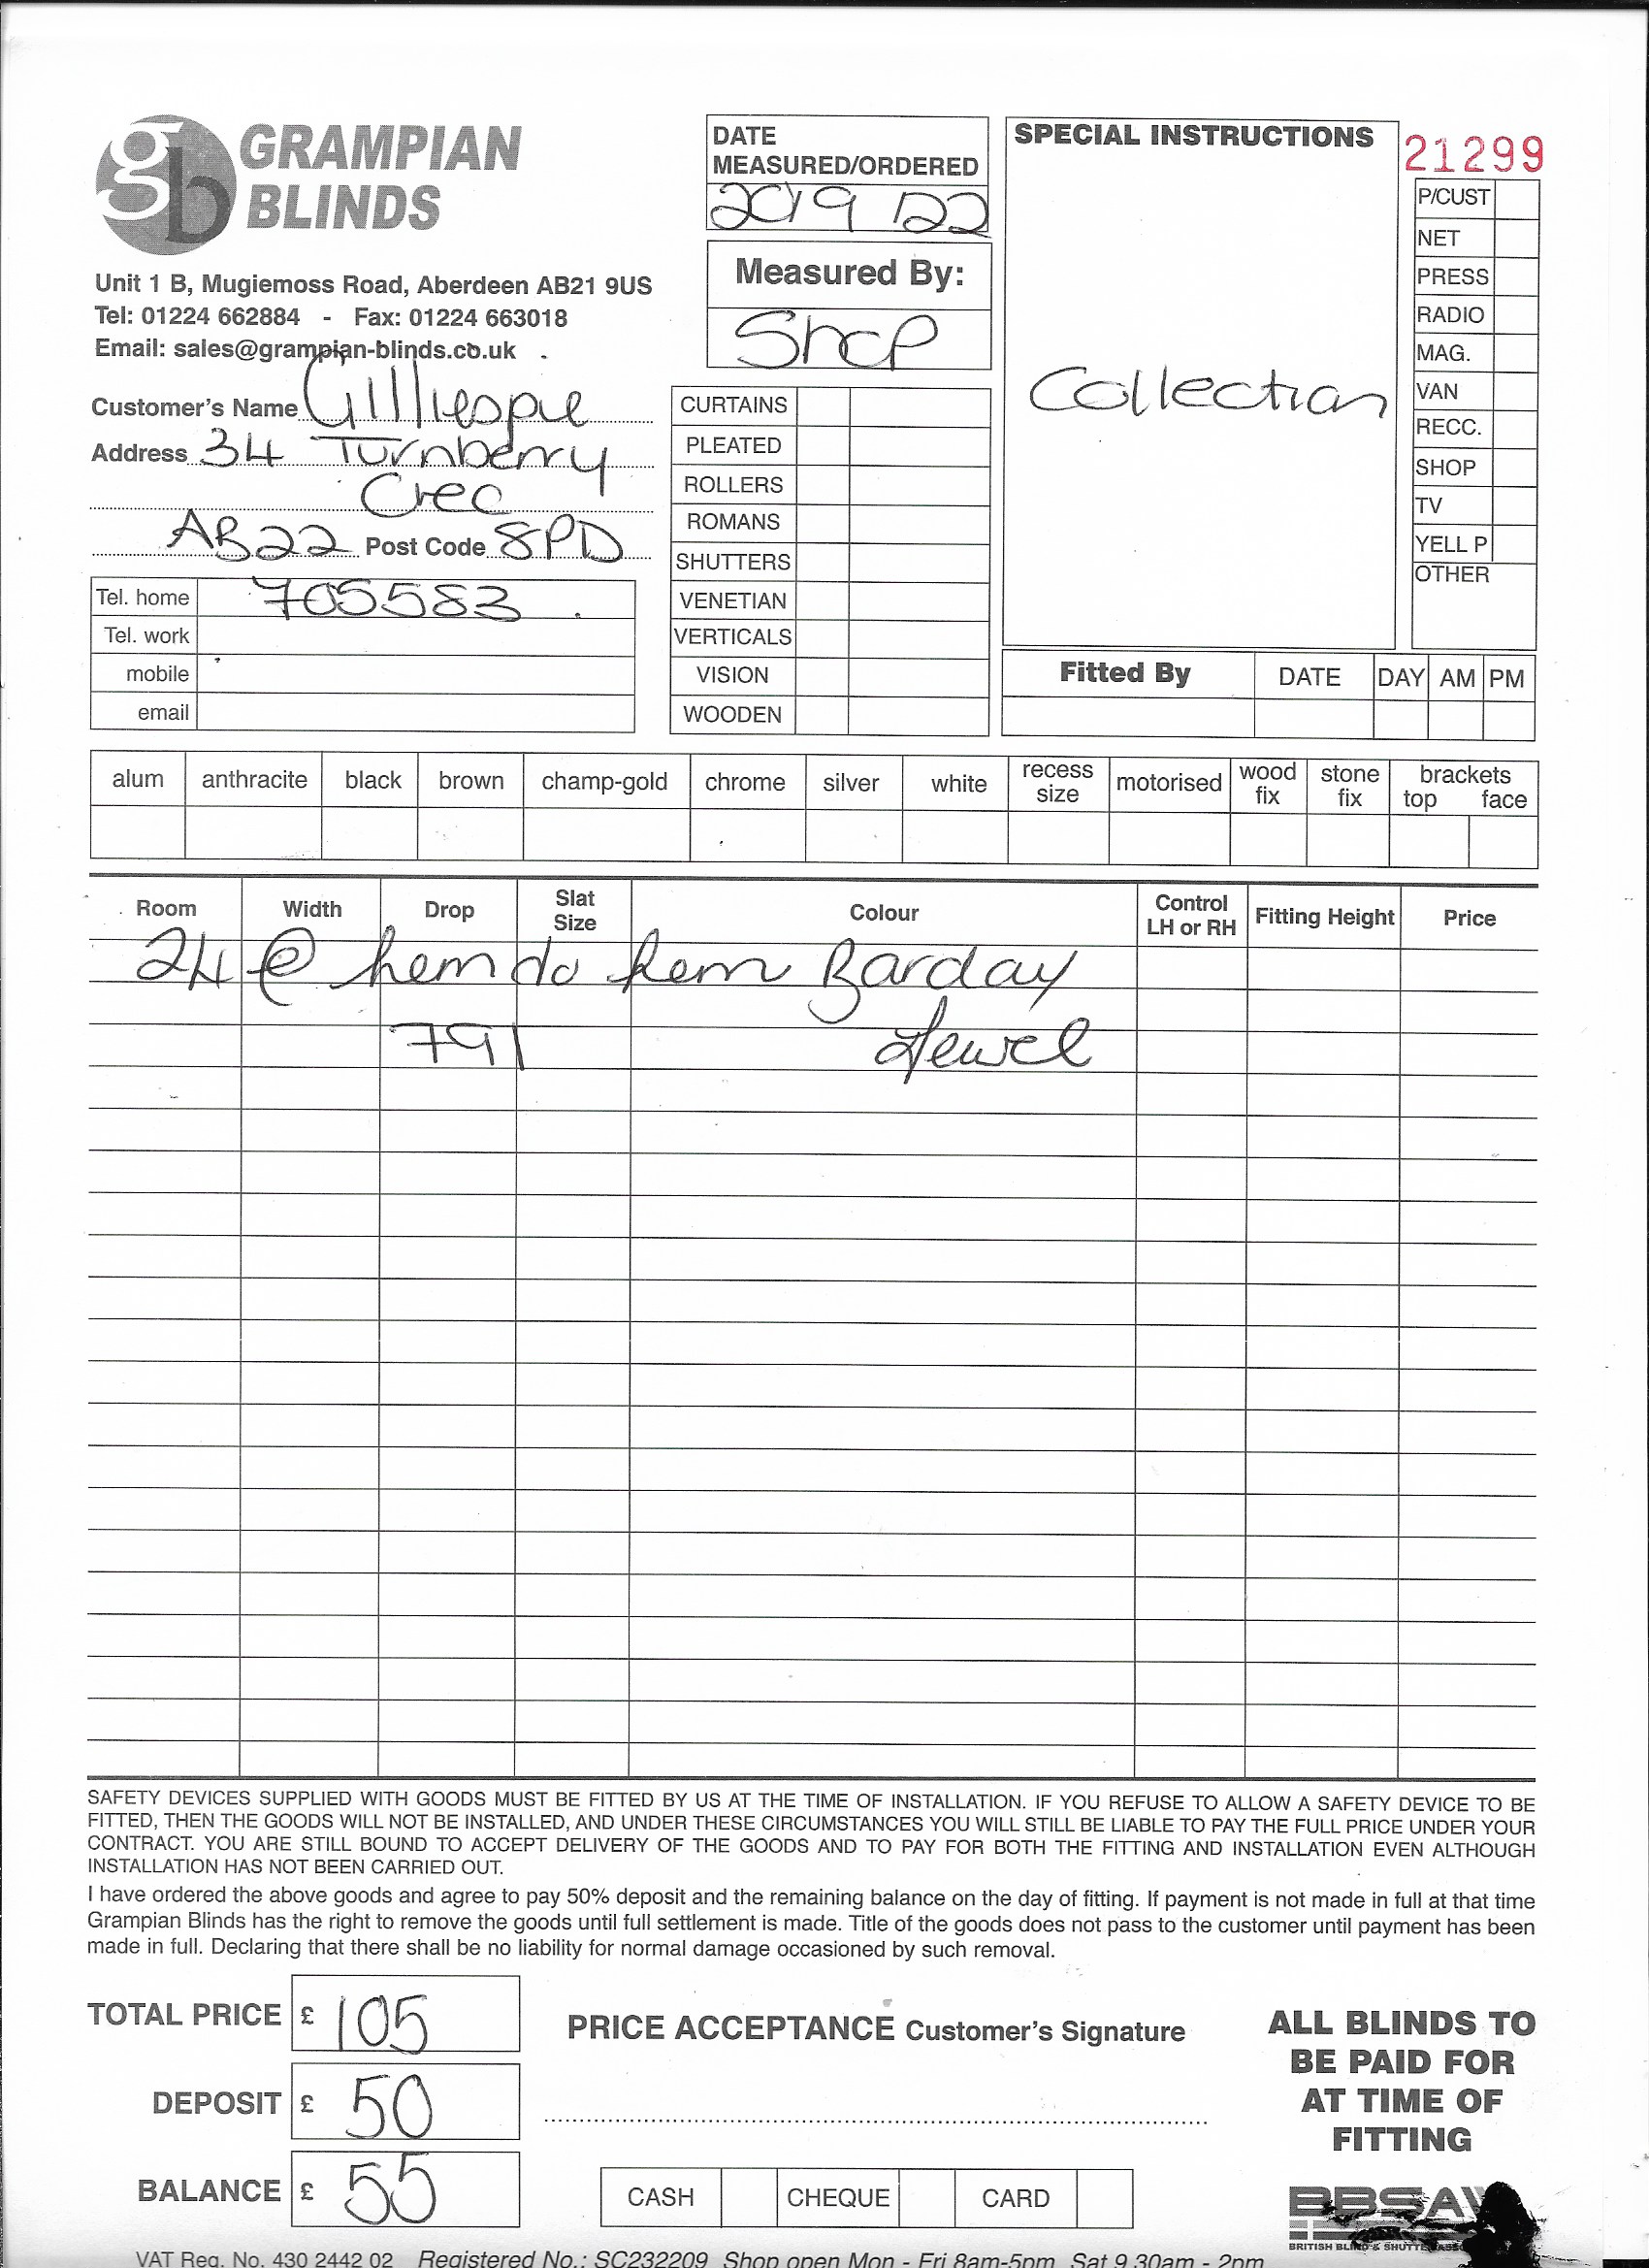 gb GRAMPIAN
BLINDS
Unit 1 B, Mugiemoss Road, Aberdeen AB21 9US
Tel: 01224 662884 - Fax: 01224 663018
Email: sales@grampian-blinds.co.uk
Customer's Name Gilliespie
Address 34 Turnberry
Crec
AB22 Post Code 8PD
Tel. home 705583
Tel. work
mobile
email
DATE
MEASURED/ORDERED
20/9/22
Measured By:
Shop
CURTAINS
PLEATED
ROLLERS
ROMANS
SHUTTERS
VENETIAN
VERTICALS
VISION
WOODEN
SPECIAL INSTRUCTIONS
Collection
21299
P/CUST
NET
PRESS
RADIO
MAG.
VAN
RECC.
SHOP
TV
YELL P
OTHER
Fitted By DATE DAY AM PM
alum anthracite black brown champ-gold chrome silver white recess size motorised wood fix stone fix brackets top face
Room Width Drop Slat Size Colour Control LH or RH Fitting Height Price
24 @ hem to hem Barclay
791 Jewel
SAFETY DEVICES SUPPLIED WITH GOODS MUST BE FITTED BY US AT THE TIME OF INSTALLATION. IF YOU REFUSE TO ALLOW A SAFETY DEVICE TO BE
FITTED, THEN THE GOODS WILL NOT BE INSTALLED, AND UNDER THESE CIRCUMSTANCES YOU WILL STILL BE LIABLE TO PAY THE FULL PRICE UNDER YOUR
CONTRACT. YOU ARE STILL BOUND TO ACCEPT DELIVERY OF THE GOODS AND TO PAY FOR BOTH THE FITTING AND INSTALLATION EVEN ALTHOUGH
INSTALLATION HAS NOT BEEN CARRIED OUT.
I have ordered the above goods and agree to pay 50% deposit and the remaining balance on the day of fitting. If payment is not made in full at that time
Grampian Blinds has the right to remove the goods until full settlement is made. Title of the goods does not pass to the customer until payment has been
made in full. Declaring that there shall be no liability for normal damage occasioned by such removal.
TOTAL PRICE £ 105
DEPOSIT £ 50
BALANCE £ 55
PRICE ACCEPTANCE Customer's Signature
CASH CHEQUE CARD
ALL BLINDS TO
BE PAID FOR
AT TIME OF
FITTING
BBSA
BRITISH BLIND & SHUTTER
VAT Reg. No. 430 2442 02 Registered No.: SC232209 Shop open Mon - Fri 8am-5pm Sat 9.30am - 2pm